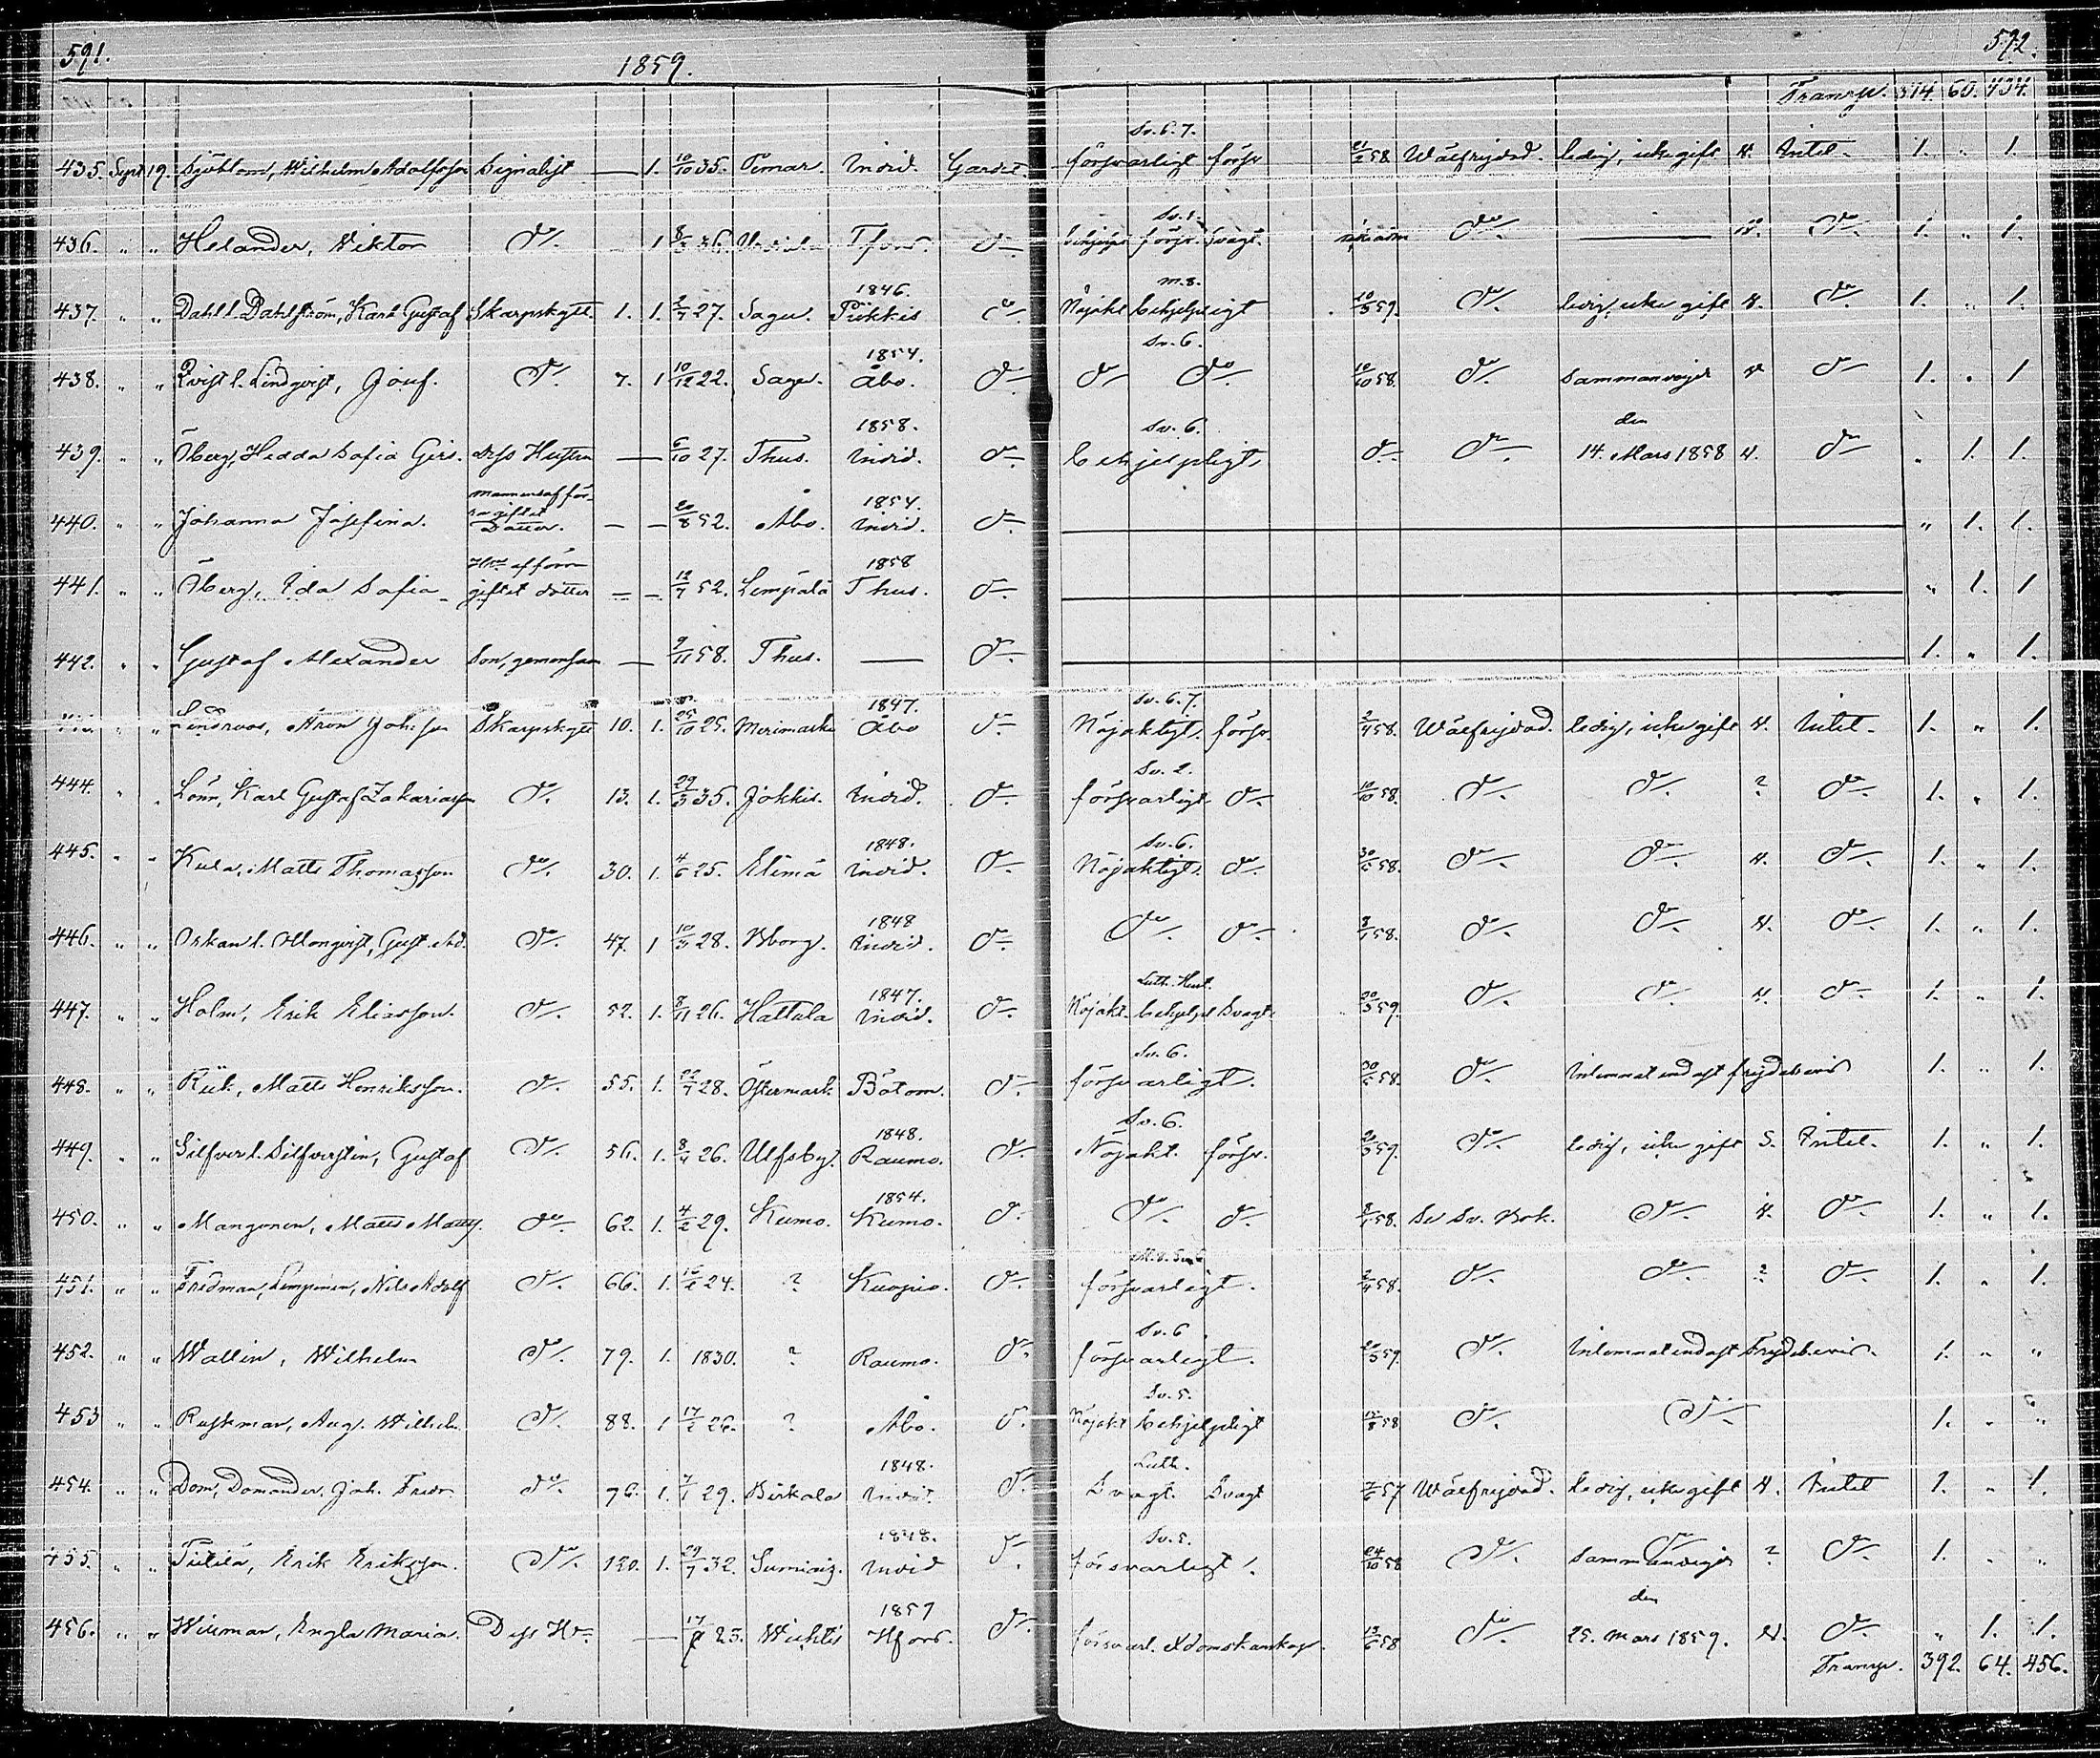 591. 1859. 592.
Transp. 374. 60. 434.
435. Sept 19. Sjöblom, Wilhelm Adolfsson Signalist — 1. 10/10 35. Pemar. Invid. Gardet. Sv. 6. 7. försvarligt försv 21/2 58 Wälfrejdad. ledig, icke gift N. Intet. 1. " 1.
436. " " Helander, Viktor Do — 1 36. Tfors. Do Sv. 1. behjelp försv. svagt. Do — N. Do 1. " 1.
437. " " Dahl l. Dahlström, Karl Gustaf Skarpskytt. 1. 1. 27. Sagu. 1846. Piikkis Do m. 8. Nöjakt behjelpligt 10/3 59. Do ledig, icke gift N. Do 1. " 1.
438. " " Qvist l. Lindqvist, Josef. Do 7. 1 10/12 22. Sagu. 1854. Åbo. Do Sv. 6. Do Do 10/10 58. Do Sammanvigd N Do 1. " 1
439. " " Öberg, Hedda Sofia Gers. dess Hustru — 6/10 27. Thus. 1858. Invid. Do Sv. 6. behjelpligt, Do Do den 14. Mars 1858 N. Do " 1. 1.
440. " " Johanna Josefina. mannens af förra giftet Dotter. — — 20/8 52. Åbo. 1854. Invid. Do " 1. 1.
441. " " Öberg, Ida Sofia af förra giftet dotter — — 12/7 52. Lempälä 1858 Thus. Do " 1. 1
442. " " Gustaf Alexander Son, gemensam — 9/11 58. Thus. — Do 1. " 1.
" Lindroos, Aron Joh. son Skarpskytt 10. 1. 25/10 25. Merimasku 1847. Åbo Do Sv. 6. 7. Nöjaktigt. försv. 2/4 58. Wälfrejdad. ledig, icke gift N. Intet. 1. " 1.
444. " " Lönn, Karl Gustaf Zakariasson Do 13. 1. 29/3 35. Jokkis. Invid. Do Sv. 2. försvarligt Do 10/10 58. Do Do ? Do 1. " 1.
445. " " Kula, Matts Thomasson Do 30. 1. 4/6 25. Elimä 1848. Invid. Do Sv. 6. Nöjaktigt. Do 58. Do Do N. Do 1. " 1.
446. " " Oskan l. Almqvist, Gust. Ad. Do 47. 1 10/3 28. Wborg. 1848 Invid. Do Do Do 58. Do Do N. Do 1. " 1.
447. " " Holm, Erik Eliasson. Do 52. 1. 8/11 26. Hattula 1847. Invid. Do Luth. Nöjakt. behjelpl Svagt 20/3 59. Do Do N. Do 1. " 1.
448. " " Riik, Matts Henriksson. Do 55. 1. 22/7 28. Östermark. Bötom. Do Sv. 6. försvarligt. 58. Do Inlemnat endast frejdebevis 1. " 1.
449. " " Silfver l. Silfverstin, Gustaf Do 56. 1. 8/4 26. Ulfsby. 1848. Raumo. Do Sv. 6. Nöjakt. försv. 59. Do ledig, icke gift S. Intet. 1. " 1.
450. " " Mangonen, Matts Matts. Do 62. 1. 4/2 29. Kumo. 1854. Kumo. Do Do Do 58. Se Sv. Bok. Do N. Do 1. " 1.
451. " " Fredman, Limponen, Nils Adolf Do 66. 1. 24. ? Kuopio. Do försvarligt. 2/4 58. Do Do ? Do 1. " 1.
452. " " Wallin, Wilhelm Do 79. 1. 1830. ? Raumo. Do Sv. 6 försvarligt. 59. Do Inlemnat endast Frejdebevis. 1. " "
453 " " Ruskman, Aug. Wilhelm Do 88. 1 26. ? Åbo. Do Sv. 5. Nöjakt behjelpligt 58 Do Do 1. " "
454. " " Dom, Domander, Joh. Fredr. Do 76. 1. 29. Birkala 1848. Invid. Do Luth. Svagt. Svagt 57 Wälfrejdad. ledig, icke gift N. Intet 1. " 1.
455. " " Erik Eriksson. Do 120. 1. 29/7 32. 1848. Invid Do Sv. 5. försvarligt. 24/10 58 Do Sammanvigd ? Do 1. " "
456. " " Wiikman, Engla Maria. Dess Hu — 23. Wichtis 1857 Hfors. Do försvarl. 58 Do den 25. Mars 1859. N. Do " 1. 1.
Transp. 392. 64. 456.